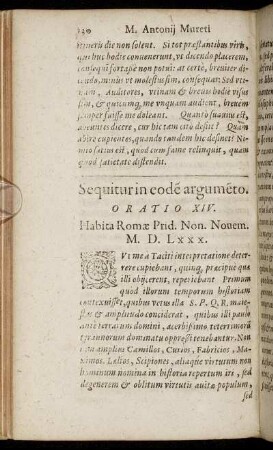 M. Antonij Mureti
neris die non solent. Si tot præstantibus viris,
quibus hodie conuenerunt, vt dicendo placerem,
consequi fortasse non potui: at certè, breuiter di-
cendo, minus vt molestus sim, consequar: Sed vti-
nam, Auditores, vtinam & breuis hodie visus
sim, & quicunq, me vnquam audient, breuem
semper fuisse me doleant. Quantò suauius est,
dicere, cur hic tam citò desijt? Quam
abire cupientes, quando tandem hic desinet? Ni-
satius est, quod cum fame relinquit, quam
quod satietate distendit.
Sequitur in codẽ argumẽto.
ORATIO XIV.
Habita Romæ Prid. Non. Nouem.
M. D. LXXX.
QVi me à Taciti interpretatione deter-
rere cupiebant, quinq, præcipuè quæ
illi obijcerent, reperiebant Primùm
quod illorum temporum historiam
contexuisset, quibus vetus illa S. P. Q. R. maie-
stas & amplitudo conciderat, quibus illi paulò
antè terrarum domini, acerbissimo teterrimoq́
tyrannorum dominatu oppressi tenebantur. Non
amplius Camillos, Curios, Fabricios, Ma-
ximos, Lælios, Scipiones, aliaque virtutum non
hominum nomina in historia repertum iri, sed
degenerem & oblitum virtutis auitæ populum,
sed